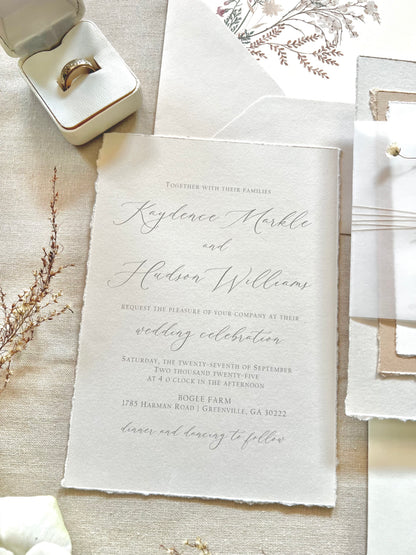 Together with their families
Kaydence Markle
and
Hudson Williams
request the pleasure of your company at their
wedding celebration
Saturday, the twenty-seventh of September
Two thousand twenty-five
at 4 o'clock in the afternoon
BOGLE FARM
1785 Harman Road | Greenville, GA 30222
dinner and dancing to follow